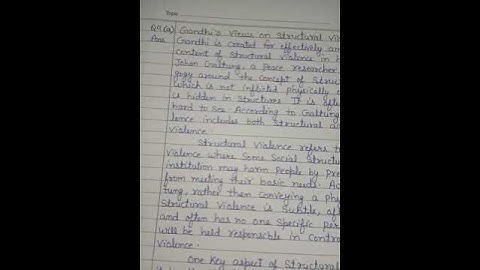 Topic
Q4(a) Gandhi's Views on Structural Vio
Ans Gandhi is created for effectively an
content of Structural Violence in h
Johan Galtung, a Peace researcher
gogy around the concept of Struct
which is not inflicted physically
is hidden in Structures. It is ofte
hard to See. According to Galtung
lence includes both Structural a
Violence.
Structural Violence refers t
Violence where Some Social Structu
institution may harm People by pre
from meeting their basic needs. Ac
tung, rather then Conveying a phy
Structural Violence is Subtle, of
and often has no one Specific per
will be held responsible in Contra
Violence.
One Key aspect of Structural